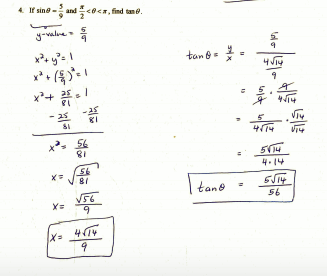 4. If sin θ = 5/9 and π/2 < θ < π, find tan θ.
y-value = 5/9
x² + y² = 1
x² + (5/9)² = 1
x² + 25/81 = 1
- 25/81 - 25/81
x² = 56/81
x = √(56/81)
x = √56/9
x = 4√14/9
tan θ = y/x = (5/9)/(4√14/9)
= 5/9 · 9/4√14
= 5/4√14 · √14/√14
= 5√14/4·14
tan θ = 5√14/56